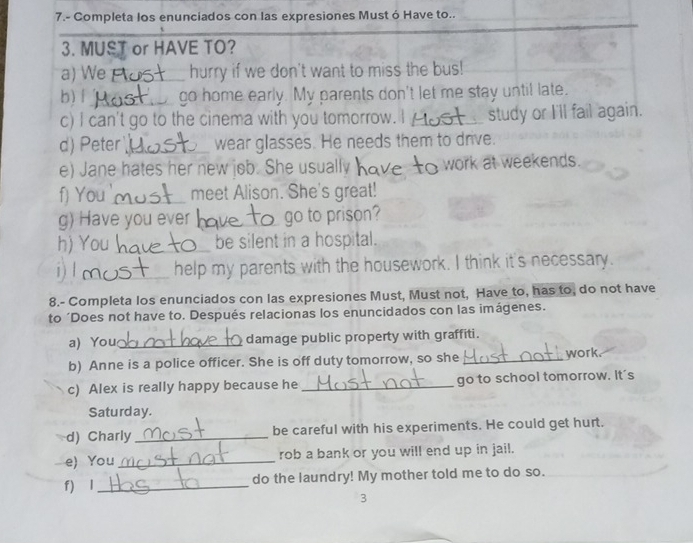 7.- Completa los enunciados con las expresiones Must ó Have to..
3. MUST or HAVE TO?
a) We Must hurry if we don't want to miss the bus!
b) I Must go home early. My parents don't let me stay until late.
c) I can't go to the cinema with you tomorrow. I Must study or I'll fail again.
d) Peter Must wear glasses. He needs them to drive.
e) Jane hates her new job. She usually have to work at weekends.
f) You must meet Alison. She's great!
g) Have you ever have to go to prison?
h) You have to be silent in a hospital.
i) I must help my parents with the housework. I think it's necessary.
8.- Completa los enunciados con las expresiones Must, Must not, Have to, has to, do not have
to ´Does not have to. Después relacionas los enuncidados con las imágenes.
a) You do not have to damage public property with graffiti.
b) Anne is a police officer. She is off duty tomorrow, so she Must not work.
c) Alex is really happy because he Must not go to school tomorrow. It´s
Saturday.
d) Charly must be careful with his experiments. He could get hurt.
e) You must not rob a bank or you will end up in jail.
f) I Has to do the laundry! My mother told me to do so.
3